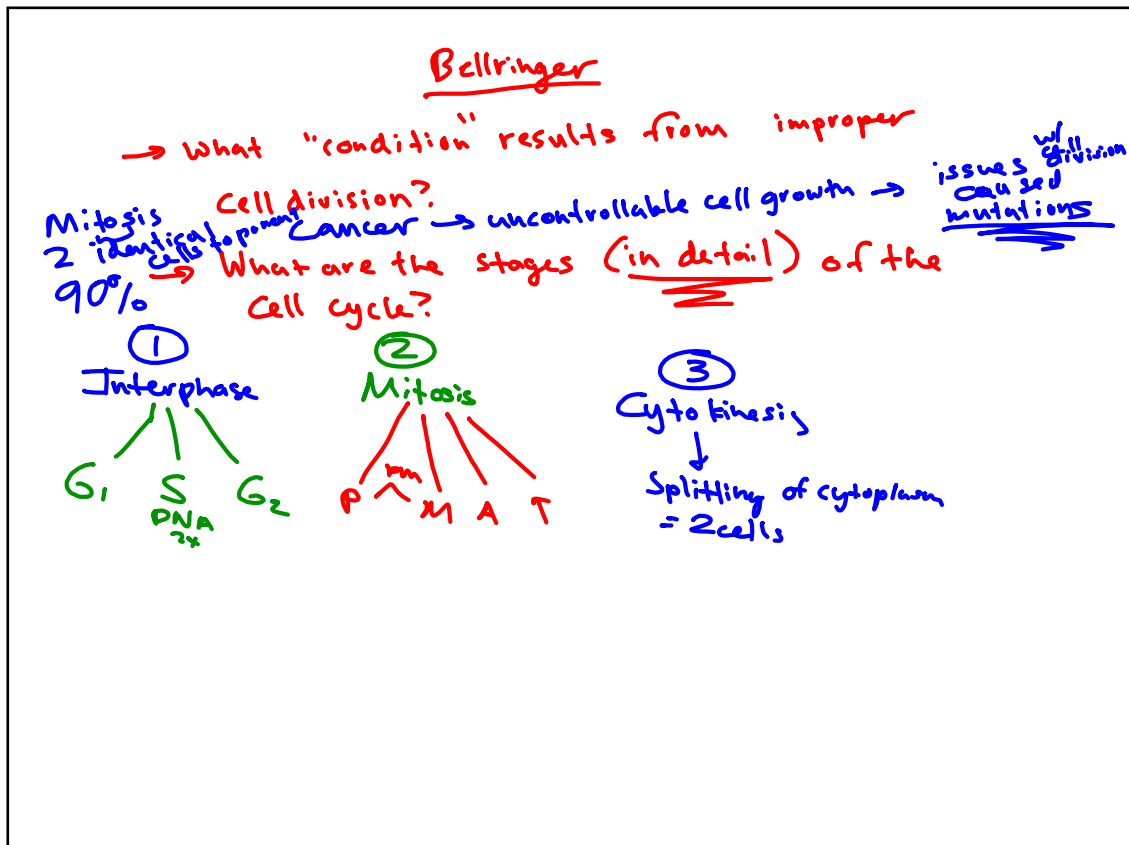 Bellringer
→ What "condition" results from improper
cell division?
Cancer → uncontrollable cell growth → issues w/ cell division
caused
mutations
Mitosis
2 identical
cells to parent
90%
→ What are the stages (in detail) of the
Cell cycle?
1
Interphase
G1 S G2
DNA
2x
2
Mitosis
P pm M A T
3
Cytokinesis
↓
Splitting of cytoplasm
= 2 cells